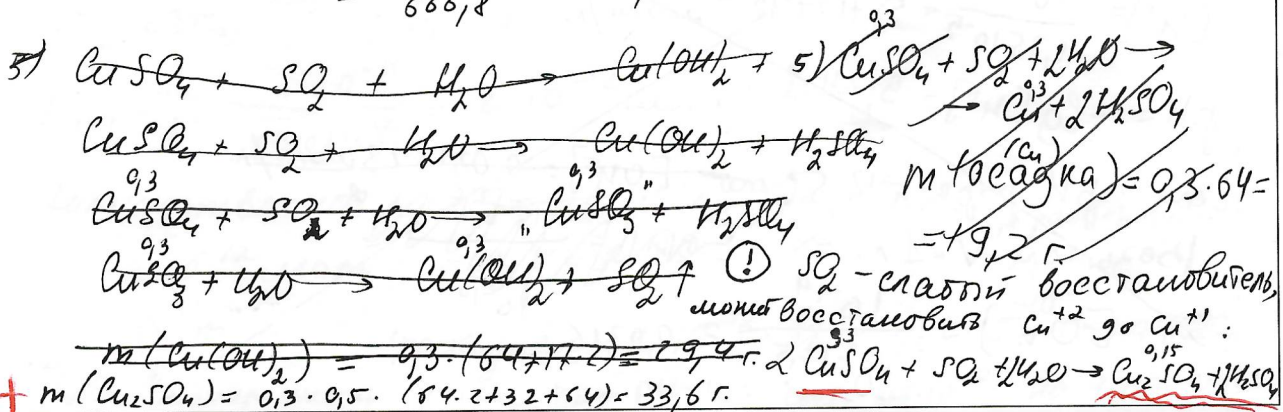 666,8
5) CuSO4 + SO2 + H2O → Cu(OH)2 +
CuSO4 + SO2 + H2O → Cu(OH)2 + H2SO4
0,3 0,3
CuSO4 + SO2 + H2O → "CuSO3" + H2SO4
0,3 0,3
CuSO3 + H2O → Cu(OH)2 + SO2↑
m(Cu(OH)2) = 0,3·(64+17·2)= 29,4 г.
+ m(Cu2SO4) = 0,3·0,5·(64·2+32+64)= 33,6 г.
0,3
5) CuSO4 + SO2 + 2H2O →
0,3
→ Cu + 2H2SO4
(Cu)
m(осадка) = 0,3·64=
=19,2 г.
! SO2 - слабый восстановитель,
может восстановить Cu+2 до Cu+1 :
0,3 0,15
2CuSO4 + SO2 + 2H2O → Cu2SO4 + 2H2SO4